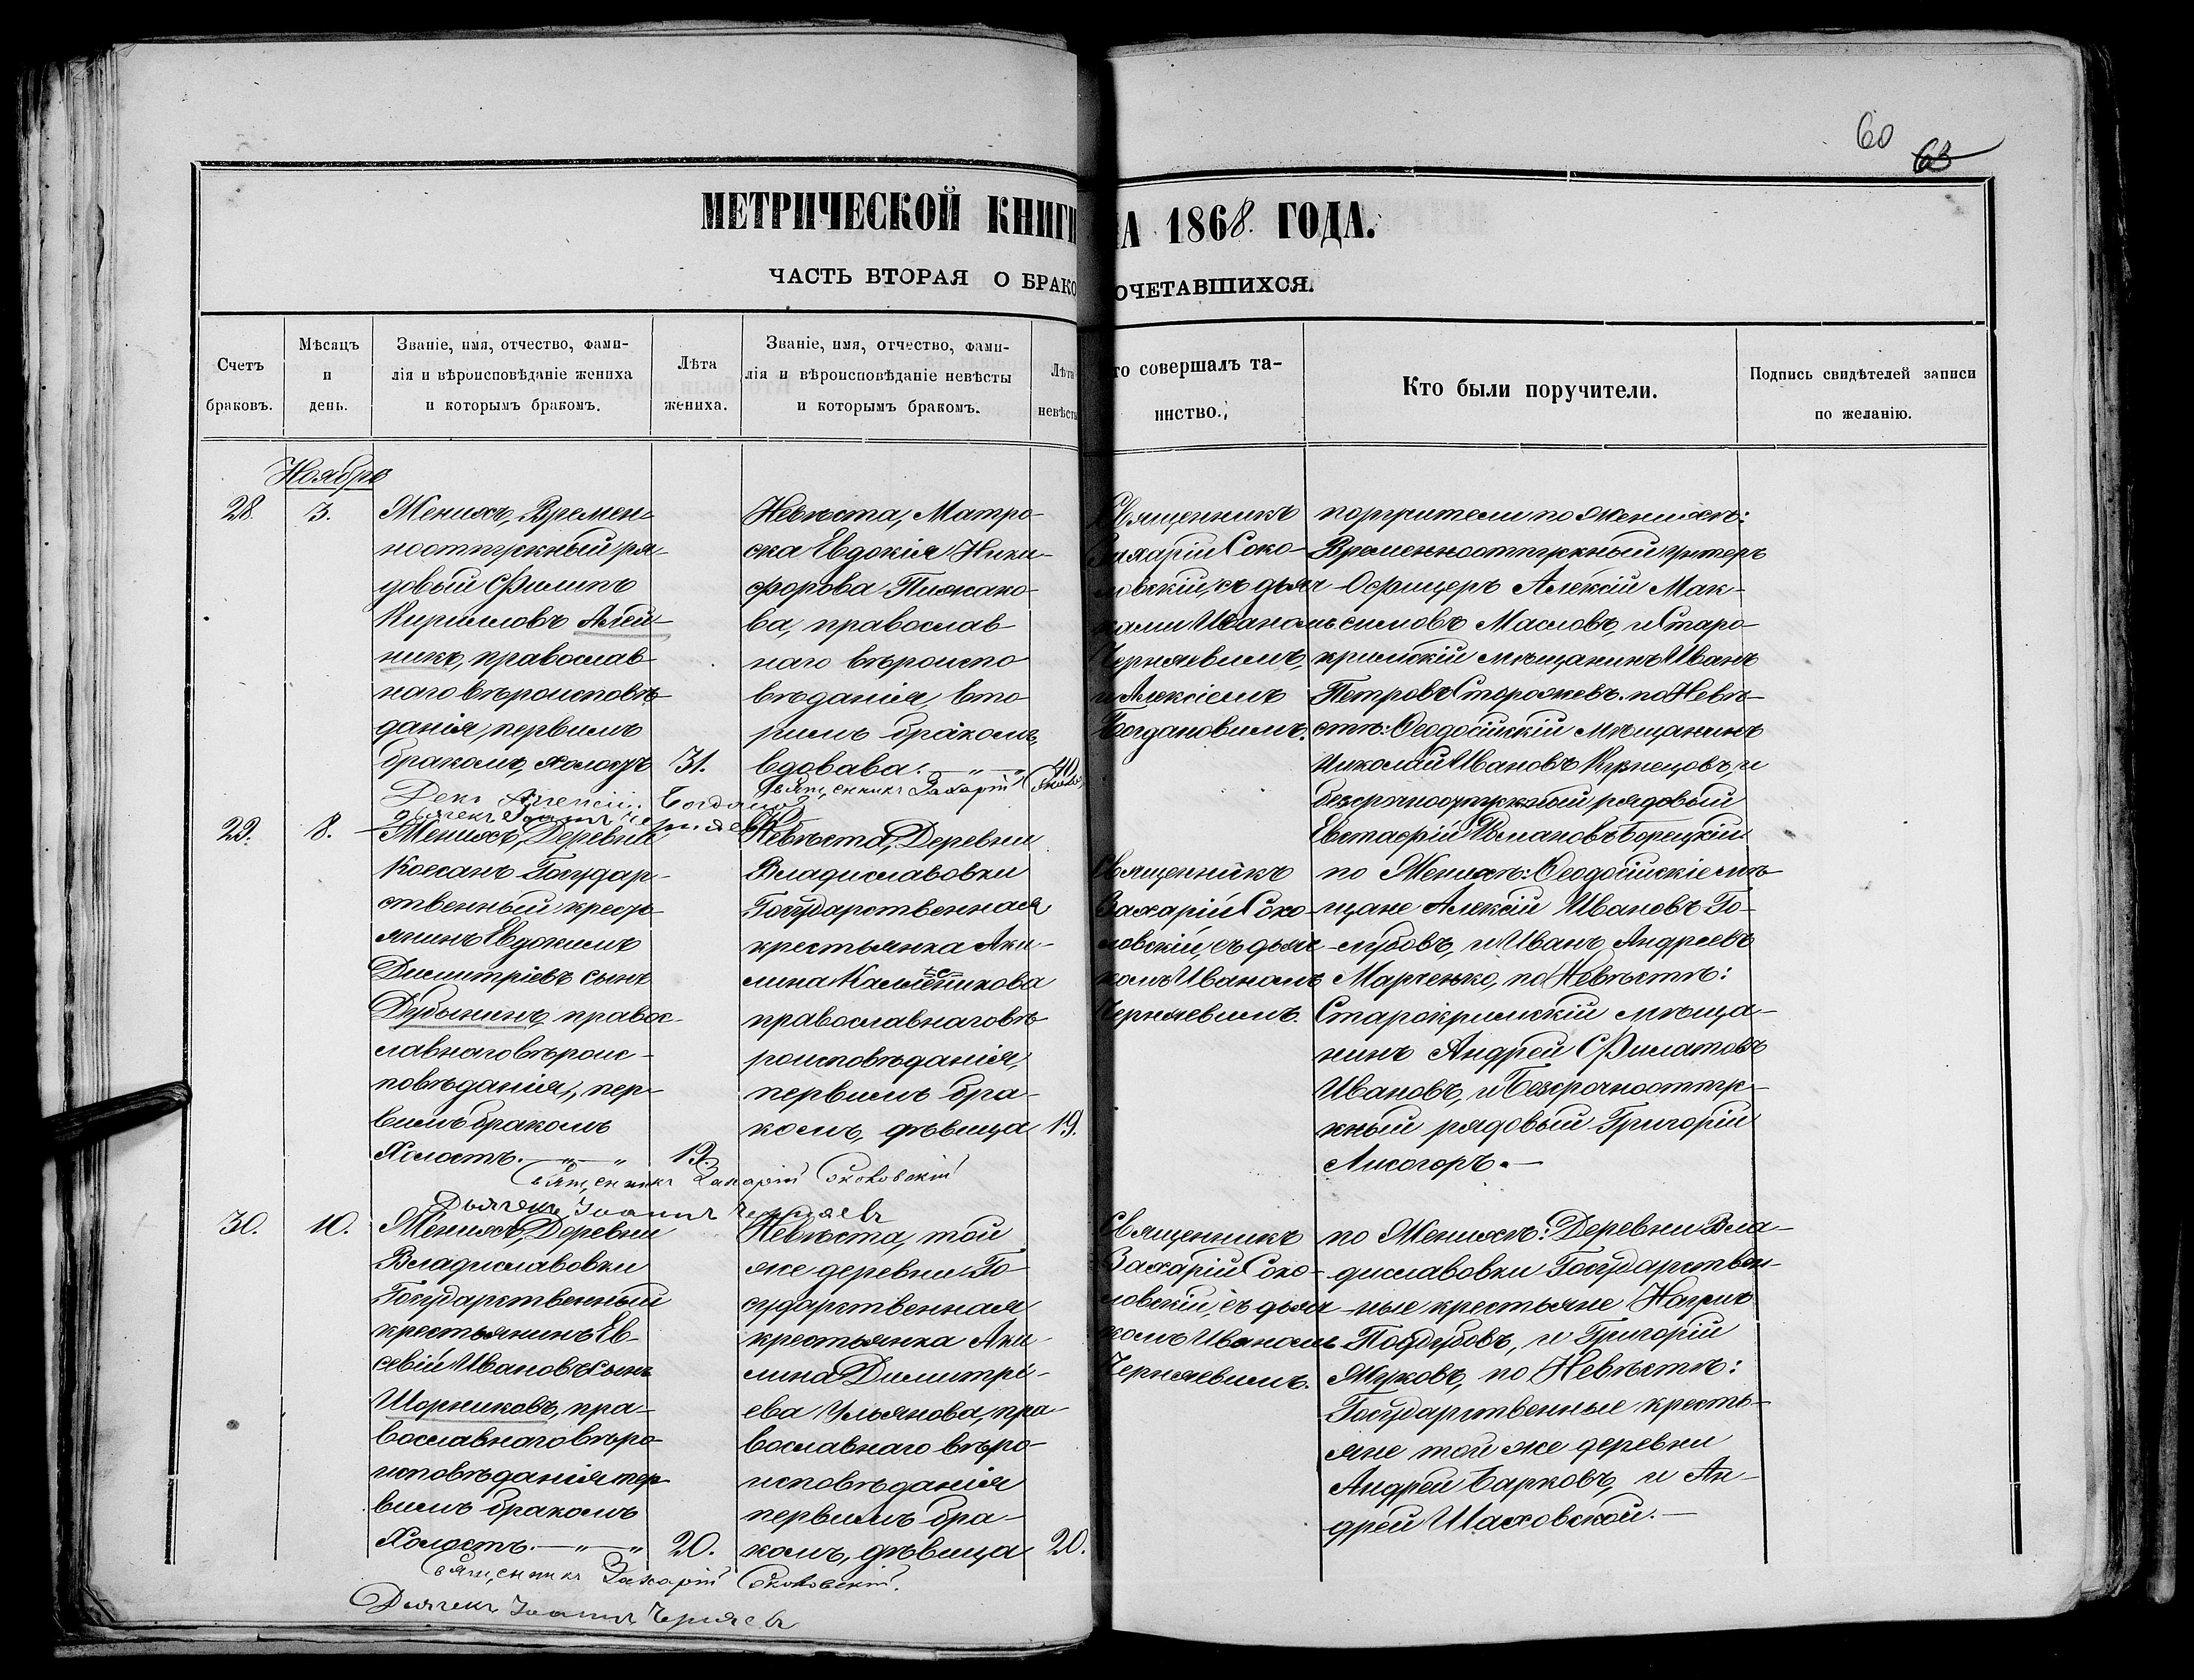 60
63
МЕТРИЧЕСКОЙ КНИГИ НА 1868. ГОДА.
ЧАСТЬ ВТОРАЯ О БРАКОСОЧЕТАВШИХСЯ.
Счетъ
браковъ.
Мѣсяцъ
и
день.
Званіе, имя, отчество, фами-
лія и вѣроисповѣданіе жениха
и которымъ бракомъ.
Лѣта
жениха.
Званіе, имя, отчество, фами-
лія и вѣроисповѣданіе невѣсты
и которымъ бракомъ.
Лѣта
невѣсты
то совершалъ та-
инство.
Кто были поручители.
Подпись свидѣтелей записи
по желанію.
Ноябрь
28.
3.
Женихъ, Времен-
ноотпускный ря-
довый Филипъ
Кирилловъ Алей-
никъ, православ-
наго вѣроисповѣ-
данія, первымъ
бракомъ, холостъ
31.
Невѣста, Матро-
ска Евдокія Ники-
форова Пижако-
ва, православ
наго вѣроиспо
вѣданія, вто
рымъ бракомъ,
вдовава.
40.
Священникъ
Захарій Соко-
ловскій, съ дьяч
ками Иваномъ
Черняевымъ,
и Алексіемъ
Богдановымъ.
поручители по женихѣ:
Временноотпускный унтеръ
Офицеръ Алексій Мак-
симовъ Масловъ, и Старо-
крымскій мѣщанинъ Иванъ
Петровъ Сторожевъ. по Невѣ-
стѣ: Ѳеодосійскій Мѣщанинъ
Николай Ивановъ Кузнецовъ, и
безсрочноотпускной рядовый
Евстафій Борецкій
Священникъ Захарій
Алексій Богданов
дьячекъ Іоаннъ Черняевъ
29.
8.
Женихъ, Деревни
Коесанъ Государ-
ственный кресть-
янинъ Евдокимъ
Димитріевъ сынъ
Дубынинъ, правос-
лавнаго вѣроис-
повѣданія, пер-
вымъ бракомъ
Холостъ.
19.
Невѣста, Деревни
Владиславовки
Государственная
крестьянка Аки-
лина
православнаго вѣ
роисповѣданія,
первымъ бра-
комъ, дѣвица
19.
Священникъ
Захарій Соко-
ловскій, съ дьяч-
комъ Иваномъ
Черняевымъ.
по Женихѣ: Ѳеодосійскіе мѣ-
щане Алексій Ивановъ Го-
лубовъ, и Иванъ Андреевъ
Марченко, по Невѣстѣ:
Старокрымскій мѣща-
нинъ Андрей Филатовъ
Ивановъ, и Безсрочноотпус-
кный рядовый Григорій
Лисогоръ.
Священникъ Захарій Соколовскій
Дьячекъ Іоаннъ Черняевъ
30.
10.
Женихъ, Деревни
Владиславовки
Государственный
крестьянинъ Ев-
севій Ивановъ сынъ
Шорниковъ, пра-
вославнаго вѣро
исповѣданія пер
вымъ бракомъ
Холостъ.
20.
Невѣста, той
же деревни Го-
сударственная
крестьянка Аки-
лина Димитрі-
ева Ульянова, пра-
вославнаго вѣро-
исповѣданія
первымъ бра-
комъ, дѣвица
20.
Священникъ
Захарій Соко-
ловскій, съ дьяч
комъ Иваномъ
Черняевымъ.
по Женихѣ: Деревни Вла-
диславовки Государствен-
ные крестьяне Наумъ
Поддубовъ, и Григорій
Жуковъ, по Невѣстѣ:
Государственные кресть-
яне той же деревни
Андрей Барковъ, и Ан-
дрей Шаховской.
Священникъ Захарій Соколовскій.
Дьячекъ Іоаннъ Черняевъ